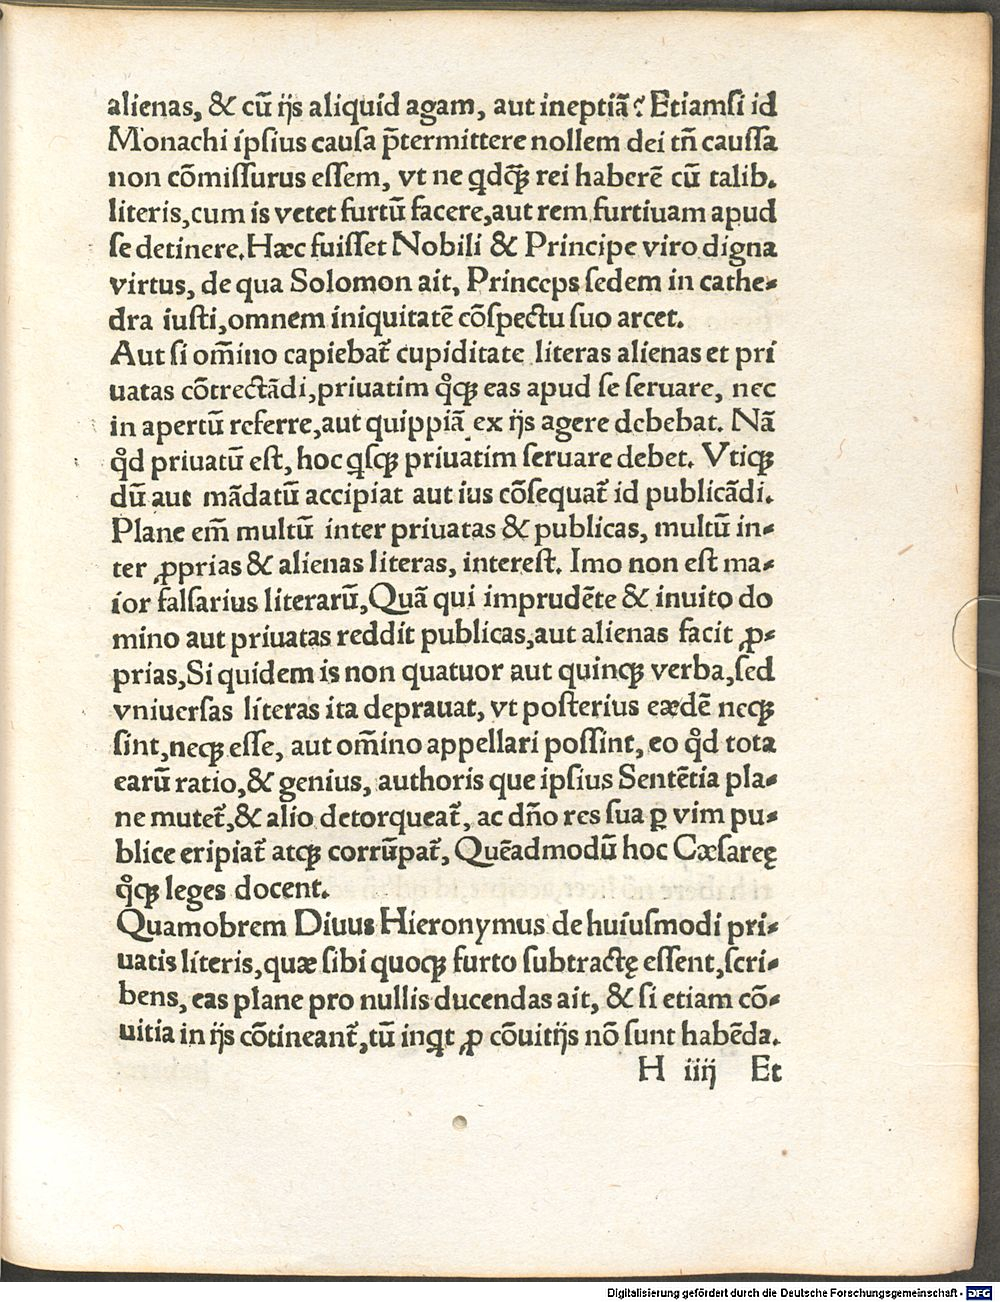 alienas, & cū ijs aliquid agam, aut ineptiā? Etiamsi id
Monachi ipsius causa p̄termittere nollem dei tn̄ caussa
non cōmissurus essem, vt ne qdꝙ̄ rei haberē cū talib.
literis,cum is vetet furtū facere,aut rem furtiuam apud
se detinere.Hæc fuisset Nobili & Principe viro digna
virtus, de qua Solomon ait, Princeps sedem in cathe⸗
dra iusti,omnem iniquitatē cōspectu suo arcet.
Aut si om̄ino capiebat᷑ cupiditate literas alienas et pri
uatas cōtrectādi,priuatim qͦꝗ eas apud se seruare, nec
in apertū referre,aut quippiā ex ijs agere debebat. Nā
qͦd priuatū est, hoc qsꝗ priuatim seruare debet. Vtiꝗ
dū aut mādatū accipiat aut ius cōsequat᷑ id publicādi.
Plane em̄ multū inter priuatas & publicas, multū in⸗
ter ꝓprias & alienas literas, interest. Imo non est ma⸗
ior falsarius literarū,Quā qui imprudēte & inuito do
mino aut priuatas reddit publicas,aut alienas facit ꝓ⸗
prias,Si quidem is non quatuor aut quinꝗ verba,sed
vniuersas literas ita deprauat, vt posterius eædē necꝗ
sint,neꝗ esse, aut om̄ino appellari possint, eo qͦd tota
earū ratio,& genius, authoris que ipsius Sentētia pla⸗
ne mutet᷑,& alio detorqueat᷑, ac dn̄o res sua ꝑ vim pu⸗
blice eripiat᷑ atꝗ corrūpat᷑, Quēadmodū hoc Cæsareę
qͦꝗ leges docent.
Quamobrem Diuus Hieronymus de huiusmodi pri⸗
uatis literis,quæ sibi quoꝗ furto subtractę essent,scri⸗
bens, eas plane pro nullis ducendas ait, & si etiam cō⸗
uitia in ijs cōtineant᷑,tū inqt ꝓ cōuitijs nō sunt habēda.
H iiij Et
Digitalisierung gefördert durch die Deutsche Forschungsgemeinschaft - DFG